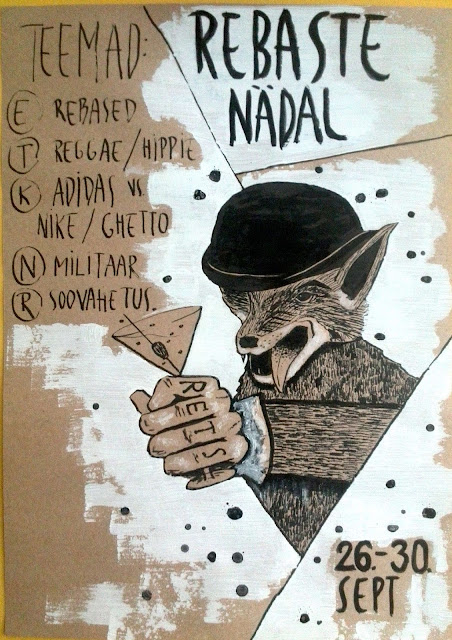 REBASTE
NÄDAL
TEEMAD:
E REBASED
T REGGAE/HIPPIE
K ADIDAS VS
NIKE/GHETTO
N MILITAAR
R SOOVAHETUS
RETISH
26.-30.
SEPT